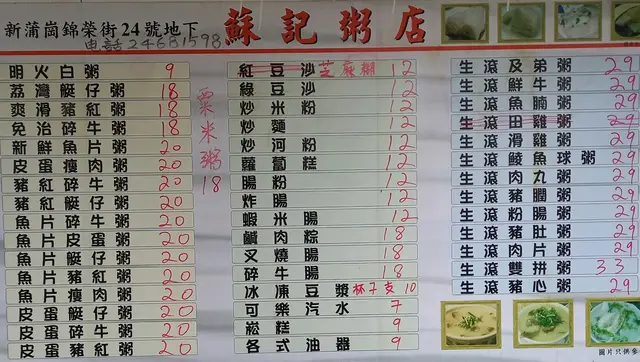 新蒲崗錦榮街24號地下
電話24681598
蘇記粥店
明火白粥 9
荔灣艇仔粥 18
爽滑豬紅粥 18
免治碎牛粥 18
新鮮魚片粥 20
皮蛋瘦肉粥 20
豬紅碎牛粥 20
豬紅艇仔粥 20
魚片碎牛粥 20
魚片皮蛋粥 20
魚片艇仔粥 20
魚片豬紅粥 20
魚片瘦肉粥 20
皮蛋艇仔粥 20
皮蛋碎牛粥 20
皮蛋豬紅粥 20
粟米粥 18
紅豆沙 芝麻糊 12
綠豆沙 12
炒米粉 12
炒麵 12
炒河粉 12
蘿蔔糕 12
腸粉 12
炸腸 12
蝦米腸 12
鹹肉粽 18
叉燒腸 18
碎牛腸 18
冰凍豆漿 杯7支10
可樂汽水 7
崧糕 9
各式油器 9
生滾及弟粥 29
生滾鮮牛粥 29
生滾魚腩粥 29
生滾田雞粥 29
生滾滑雞粥 29
生滾鯪魚球粥 29
生滾肉丸粥 29
生滾豬膶粥 29
生滾粉腸粥 29
生滾豬肚粥 29
生滾肉片粥 29
生滾雙拼粥 33
生滾豬心粥 29
圖片只供參